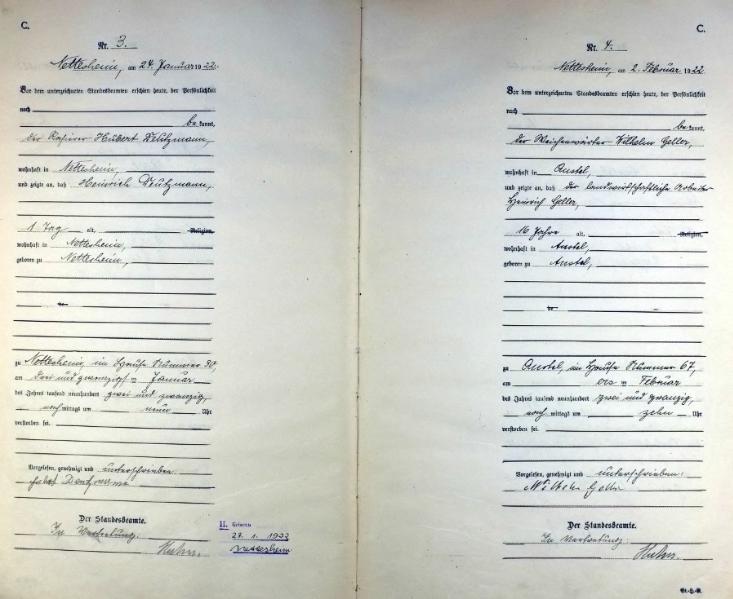 C.
Nr. 3.
Nettesheim, am 24. Januar 1922.
Vor dem unterzeichneten Standesbeamten erschien heute, der Persönlichkeit
nach
be kannt,
der Hubert Deutzmann,
wohnhaft in Nettesheim,
und zeigte an, daß Heinrich Deutzmann,
1 Tag alt, Religion,
wohnhaft in Nettesheim,
geboren zu Nettesheim,
zu Nettesheim, im Hause Nummer 30,
am drei und zwanzigsten Januar
des Jahres tausend neunhundert zwei und zwanzig,
nach mittags um neun Uhr
verstorben sei.
Vorgelesen, genehmigt und unterschrieben
Der Standesbeamte.
In Vertretung:
Kuhn.
27. 1. 1922
C.
Nr. 4.
Nettesheim, am 2. Februar 1922
Vor dem unterzeichneten Standesbeamten erschien heute, der Persönlichkeit
nach
be kannt,
der Weichenwärter Wilhelm Geller,
wohnhaft in Anstel,
und zeigte an, daß der landwirtschaftliche Arbeiter
Heinrich Geller,
16 Jahre alt, Religion,
wohnhaft in Anstel,
geboren zu Anstel,
zu Anstel, im Hause Nummer 67,
am Februar
des Jahres tausend neunhundert zwei und zwanzig,
nach mittags um zehn Uhr
verstorben sei.
Vorgelesen, genehmigt und unterschrieben:
Wilhelm Geller
Der Standesbeamte.
In Vertretung:
Kuhn.